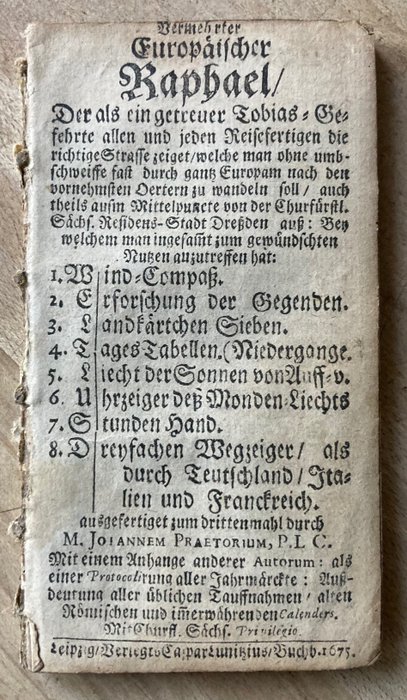 Vermehrter
Europäischer
Raphael/
Der als ein getreuer Tobias-Ge-
fehrte allen und jeden Reisefertigen die
richtige Strasse zeiget/welche man ohne umb-
schweiffe fast durch gantz Europam nach den
vornehmsten Oertern zu wandeln soll/ auch
theils ausm Mittelpuncte von der Churfürstl.
Sächs. Residens-Stadt Dreßden auß: Bey
welchem man ingesam̃t zum gewündschten
Nutzen anzutreffen hat:
1. Wind-Compaß.
2. Erforschung der Gegenden.
3. Landkärtchen Sieben.
4. Tages Tabellen. (Niedergange.
5. Liecht der Sonnen von Auff-v.
6. Uhrzeiger deß Monden-Liechts
7. Stunden Hand.
8. Dreyfachen Wegzeiger/ als
durch Teutschland/ Ita-
lien und Franckreich.
ausgefertiget zum drittenmahl durch
M. JOHANNEM PRAETORIUM, P. L C.
Mit einem Anhange anderer Autorum: als
einer Protocolirung aller Jahrmärckte: Auß-
deutung aller üblichen Tauffnahmen/ alten
Römischen und im̃erwährenden Calenders.
Mit Churfl. Sächs. Privilegio.
Leipzig/Verlegts Caspar Lunitzius/Buchh. 1675.